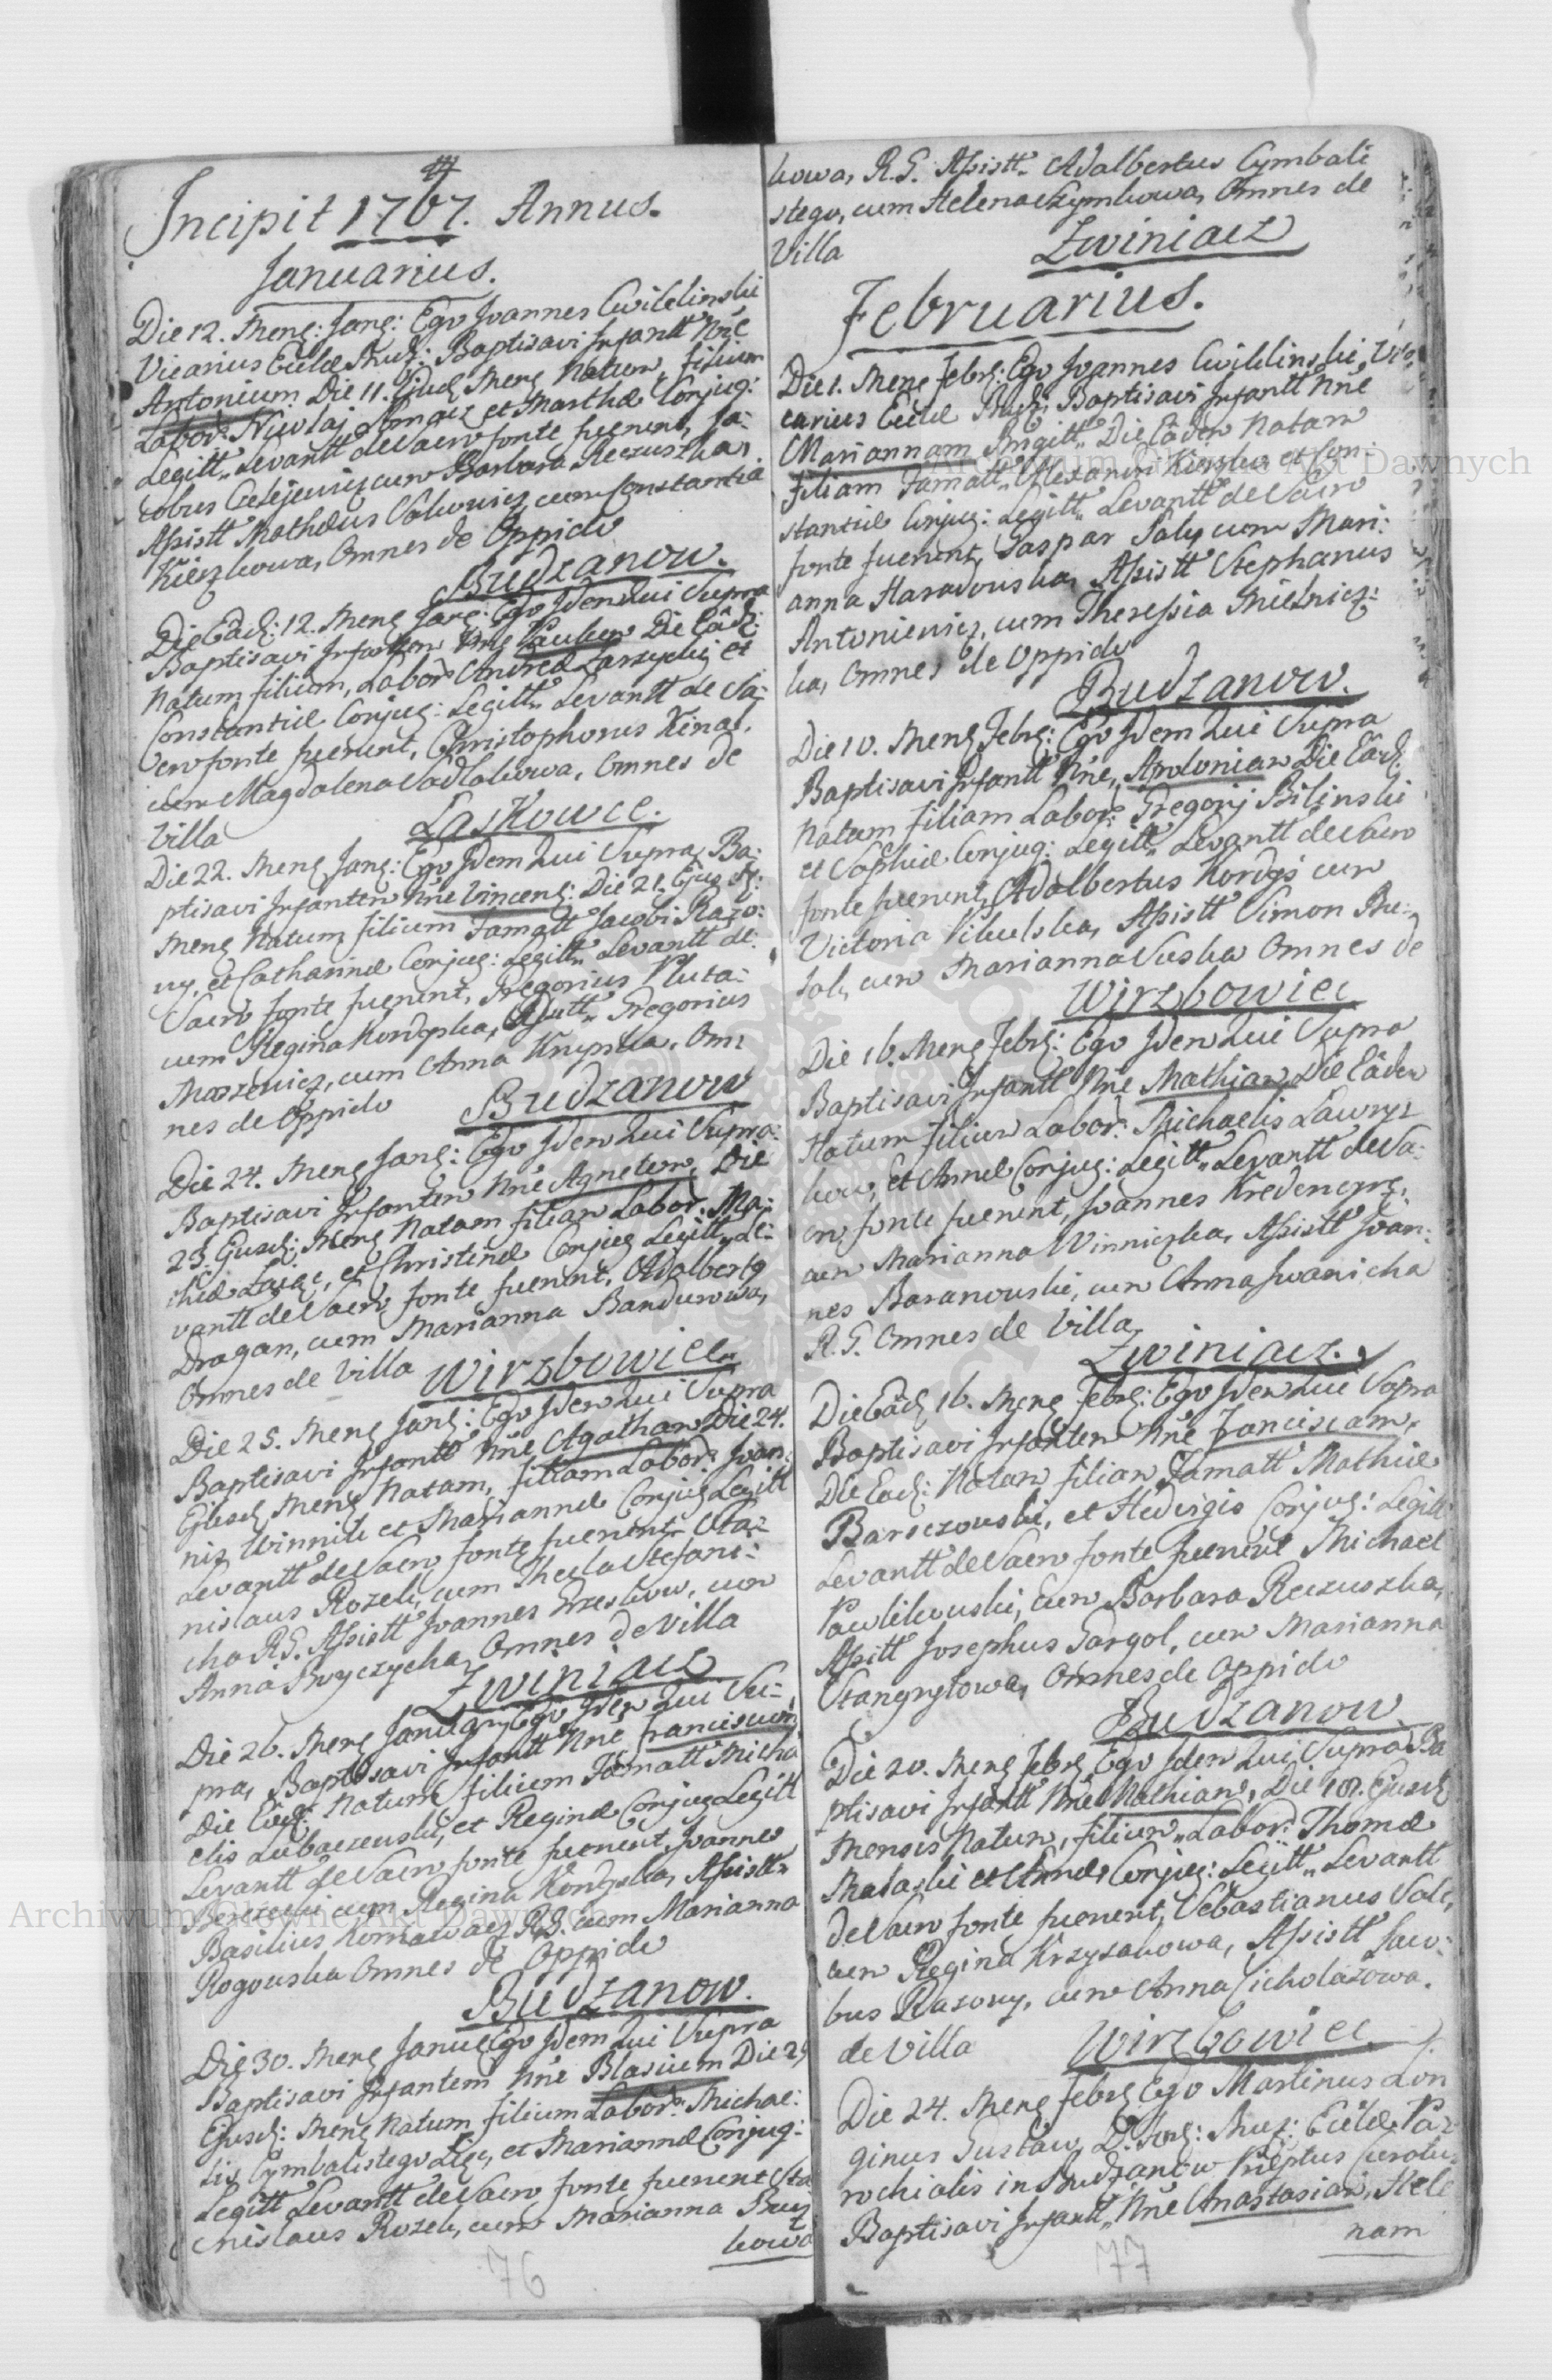 Incipit 1767. Annus.
Januarius.
Die 12. Mens: Jan: Ego Joannes Cwiklinski
Vicarius Eccl Bud: Baptisavi Infantt Nne
Antonium Die 11. Ejusd Mens Natum, filium
Labor: Nicolaj et Marthæ Conjug:
Legitt. Levantt de Sacro fonte fuerunt, Ja:
cobus cum Barbara Reczuszka,
Assistt Mathæus cum Constantia
Omnes de Oppido
Budzanow.
Die Eâd: 12. Mens Jan: Ego Idem Qui Supra
Baptisavi Infantem Nne Paulum Die Eâd:
Natum filium, Labor Andreæ Zarzycki et
Constantiæ Conjug: Legitt. Levantt de Sa:
cro fonte fuerunt, Christophorus Kinal,
cum Magdalena Sadlakowa, Omnes de
Villa
Laskowce.
Die 22. Mens Jan: Ego Idem Qui Supra, Ba:
ptisavi Infantem Nne Vincent: Die 21. Ejus d:
Mens Natum, filium Famatt Jacobi Razo:
ny, et Catharinæ Conjug: Legitt. Levantt de
Sacro fonte fuerunt, Gregorius Pluta:
cum Regina Kordyska, Gregorius
cum Anna Krupska, Om:
nes de Oppido
Budzanow
Die 24. Mens Jan: Ego Idem Qui Supra:
Baptisavi Infantem Nne Agnetem, Die
23. Ejusd: Mens Natam filiam Labor: Ma:
et Christinæ Conjug Legitt. Le:
vantt de Sacro fonte fuerunt, Adalbertus
Dragan, cum Marianna Bandurowa,
Omnes de Villa
Wirzbowiec
Die 25. Mens Jan: Ego Idem Qui Supra
Baptisavi Infantt Nne Agatham Die 24.
Ejusd Mens Natam, filiam Labor: Joan:
nis Winnik et Mariannæ Conjug Legitt
Levantt de Sacro fonte fuerunt Sta:
nislaus Rozek, cum Thecla Stefani:
cha R.G. Assistt Joannes Grzeskow, cum
Anna Omnes de Villa
Zwiniacz
Die 26. Mens Ego Idem Qui Su:
pra, Baptisavi Infantt Nne Franciscum
Die Eâd: Natum filium Famatt Micha
elis Lubaczewski, et Reginæ Conjug Legitt
Levantt de Sacro fonte fuerunt, Joannes
cum Regina Kordyska, Assistt
Basilius R.G. cum Marianna
Rogowska Omnes de Oppido
Budzanow.
Die 30. Mens Ego Idem Qui Supra
Baptisavi Infantem Nne Blasium Die 29
Ejusd: Mens Natum filium Labor: Michae:
lis Cymbalistego et Mariannæ Conjug:
Legitt Levantt de Sacro fonte fuerunt Sta
nislaus Rozek, cum Marianna
kowa
76
kowa, R.G. Assistt. Adalbertus Cymbali
stego, cum Helena Szymkowa, Omnes de
Villa
Zwiniacz
Februarius.
Die 1. Mens Febr: Ego Joannes Cwiklinski, Vi
carius Eccl Bud: Baptisavi Infantt Nne
Mariannam Brigitt. Die Eâdem Natam
filiam Famatt. Alexandri et Con:
stantiæ Conjug: Legitt. Levantt de Sacro
fonte fuerunt, Gaspar Saly cum Mari:
anna Haradowska, Assistt Stephanus
Antoniewicz, cum Theressia Mielnicz:
ka, Omnes de Oppido
Budzanow.
Die 10. Mens Febr: Ego Idem Qui Supra
Baptisavi Infantt Nne, Apoloniam Die Eâd:
Natam filiam Labor: Gregorij Bilinski
et Sophiæ Conjug: Legitt. Levantt de Sacro
fonte fuerunt, Adalbertus Kordys cum
Victoria Assistt Simon
cum Marianna Omnes de
Wirzbowiec
Die 16. Mens Febr: Ego Idem Qui Supra
Baptisavi Infantt Nne Mathiam, Die Eâdem
Natum filium Labor: Michaelis Lawrysz
kow, et Annæ Conjug: Legitt. Levantt de Sa:
cro fonte fuerunt, Joannes
cum Marianna Winniczka, Assistt Joan:
nes Baranowski, cum Anna Iwanicha
R.G. Omnes de Villa
Zwiniacz.
Die Eâd, 16. Mens Febr: Ego Idem Qui Supra
Baptisavi Infantem Nne Franciscam,
Die Ead: Natam filiam Famatt Mathiæ
Barsczowski, et Hedvigis Conjug: Legitt
Levantt de Sacro fonte fuerunt Michael
Pawlikowski, cum Barbara Reczuszka,
Assitt Josephus Gargol, cum Marianna
Omnes de Oppido
Budzanow.
Die 20. Mens Febr Ego Idem Qui Supra Ba
ptisavi Infantt Nne Mathiam, Die 18. Ejusd
Mensis Natum, filium Labor: Thomæ
et Annæ Conjug: Legitt. Levantt
de Sacro fonte fuerunt, Sebastianus
cum Regina Krzyzakowa, Assistt Jaco:
bus Razony, cum Anna Cicholazowa.
de Villa
Wirzbowiec
Die 24. Mens Febr Ego Martinus Lon
ginus Gustaw, Eccle Pa:
rochialis in Budzanow
Baptisavi Infantt. Nne Anastasiam, Hele
nam
77
Archiwum Główne Akt Dawnych
Archiwum Główne Akt Dawnych